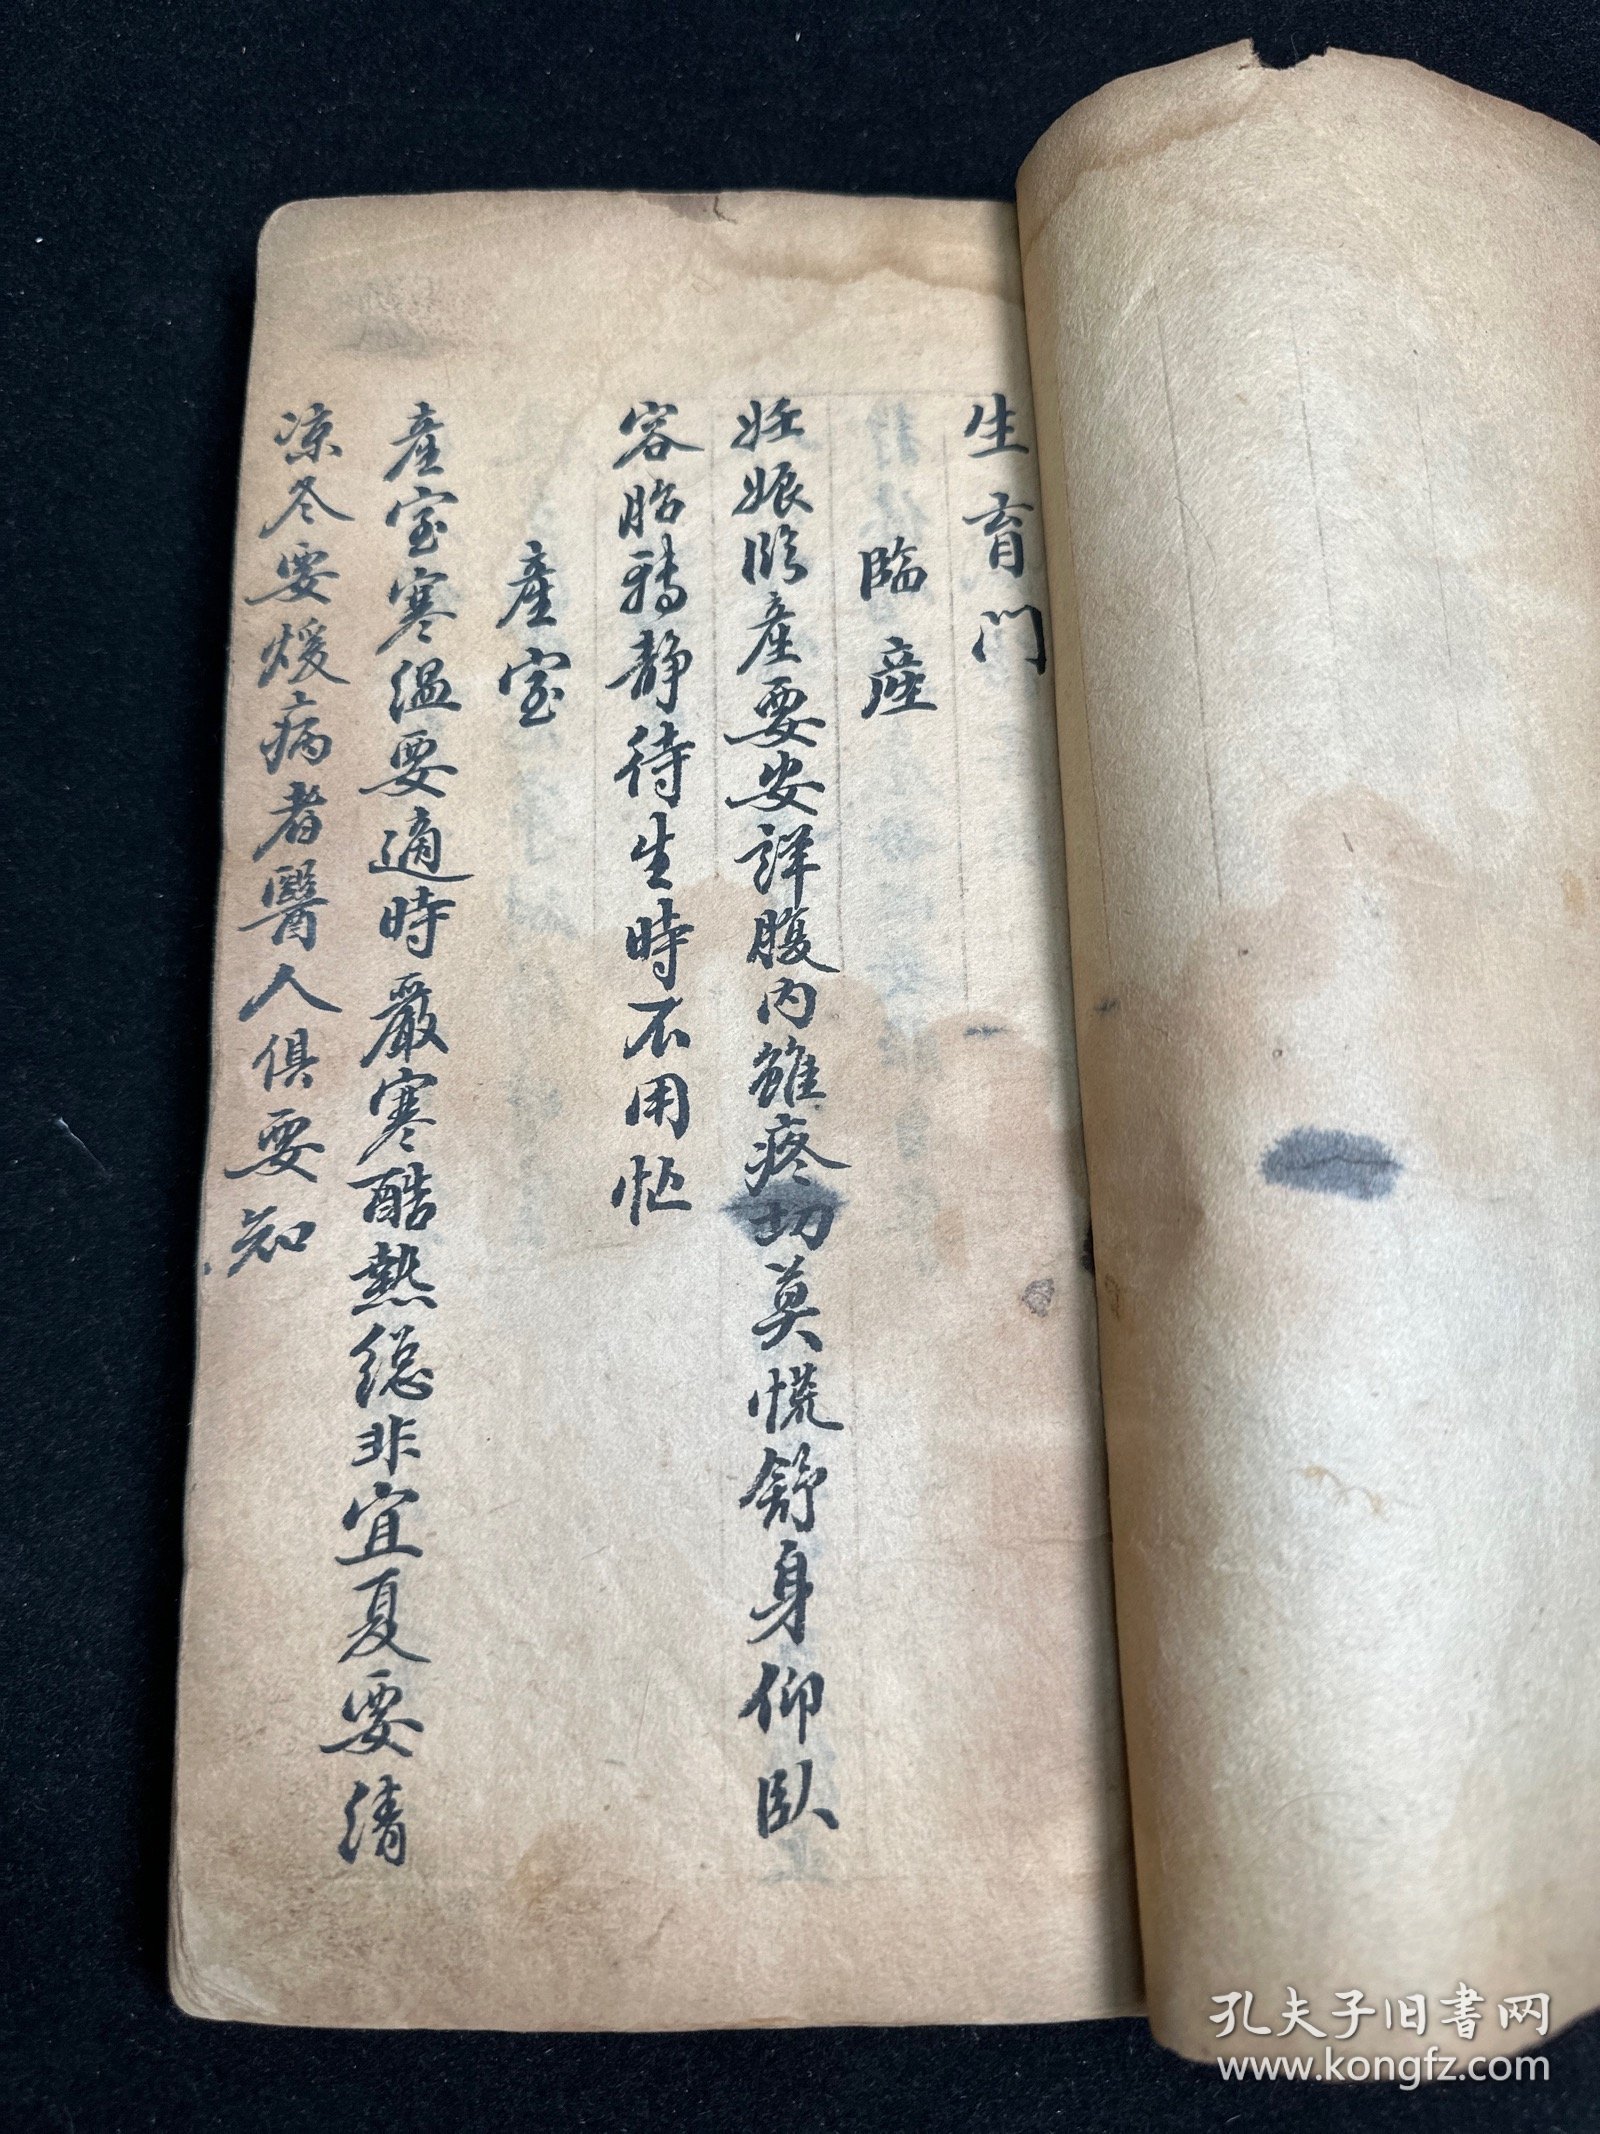 生育門
臨產
妊娠臨產要安詳腹內雖疼切莫慌舒身仰臥
容胎轉靜待生時不用忙
產室
產室寒溫要適時嚴寒酷熱總非宜夏要清
涼冬要煖病者醫人俱要知
孔夫子旧书网
www.kongfz.com